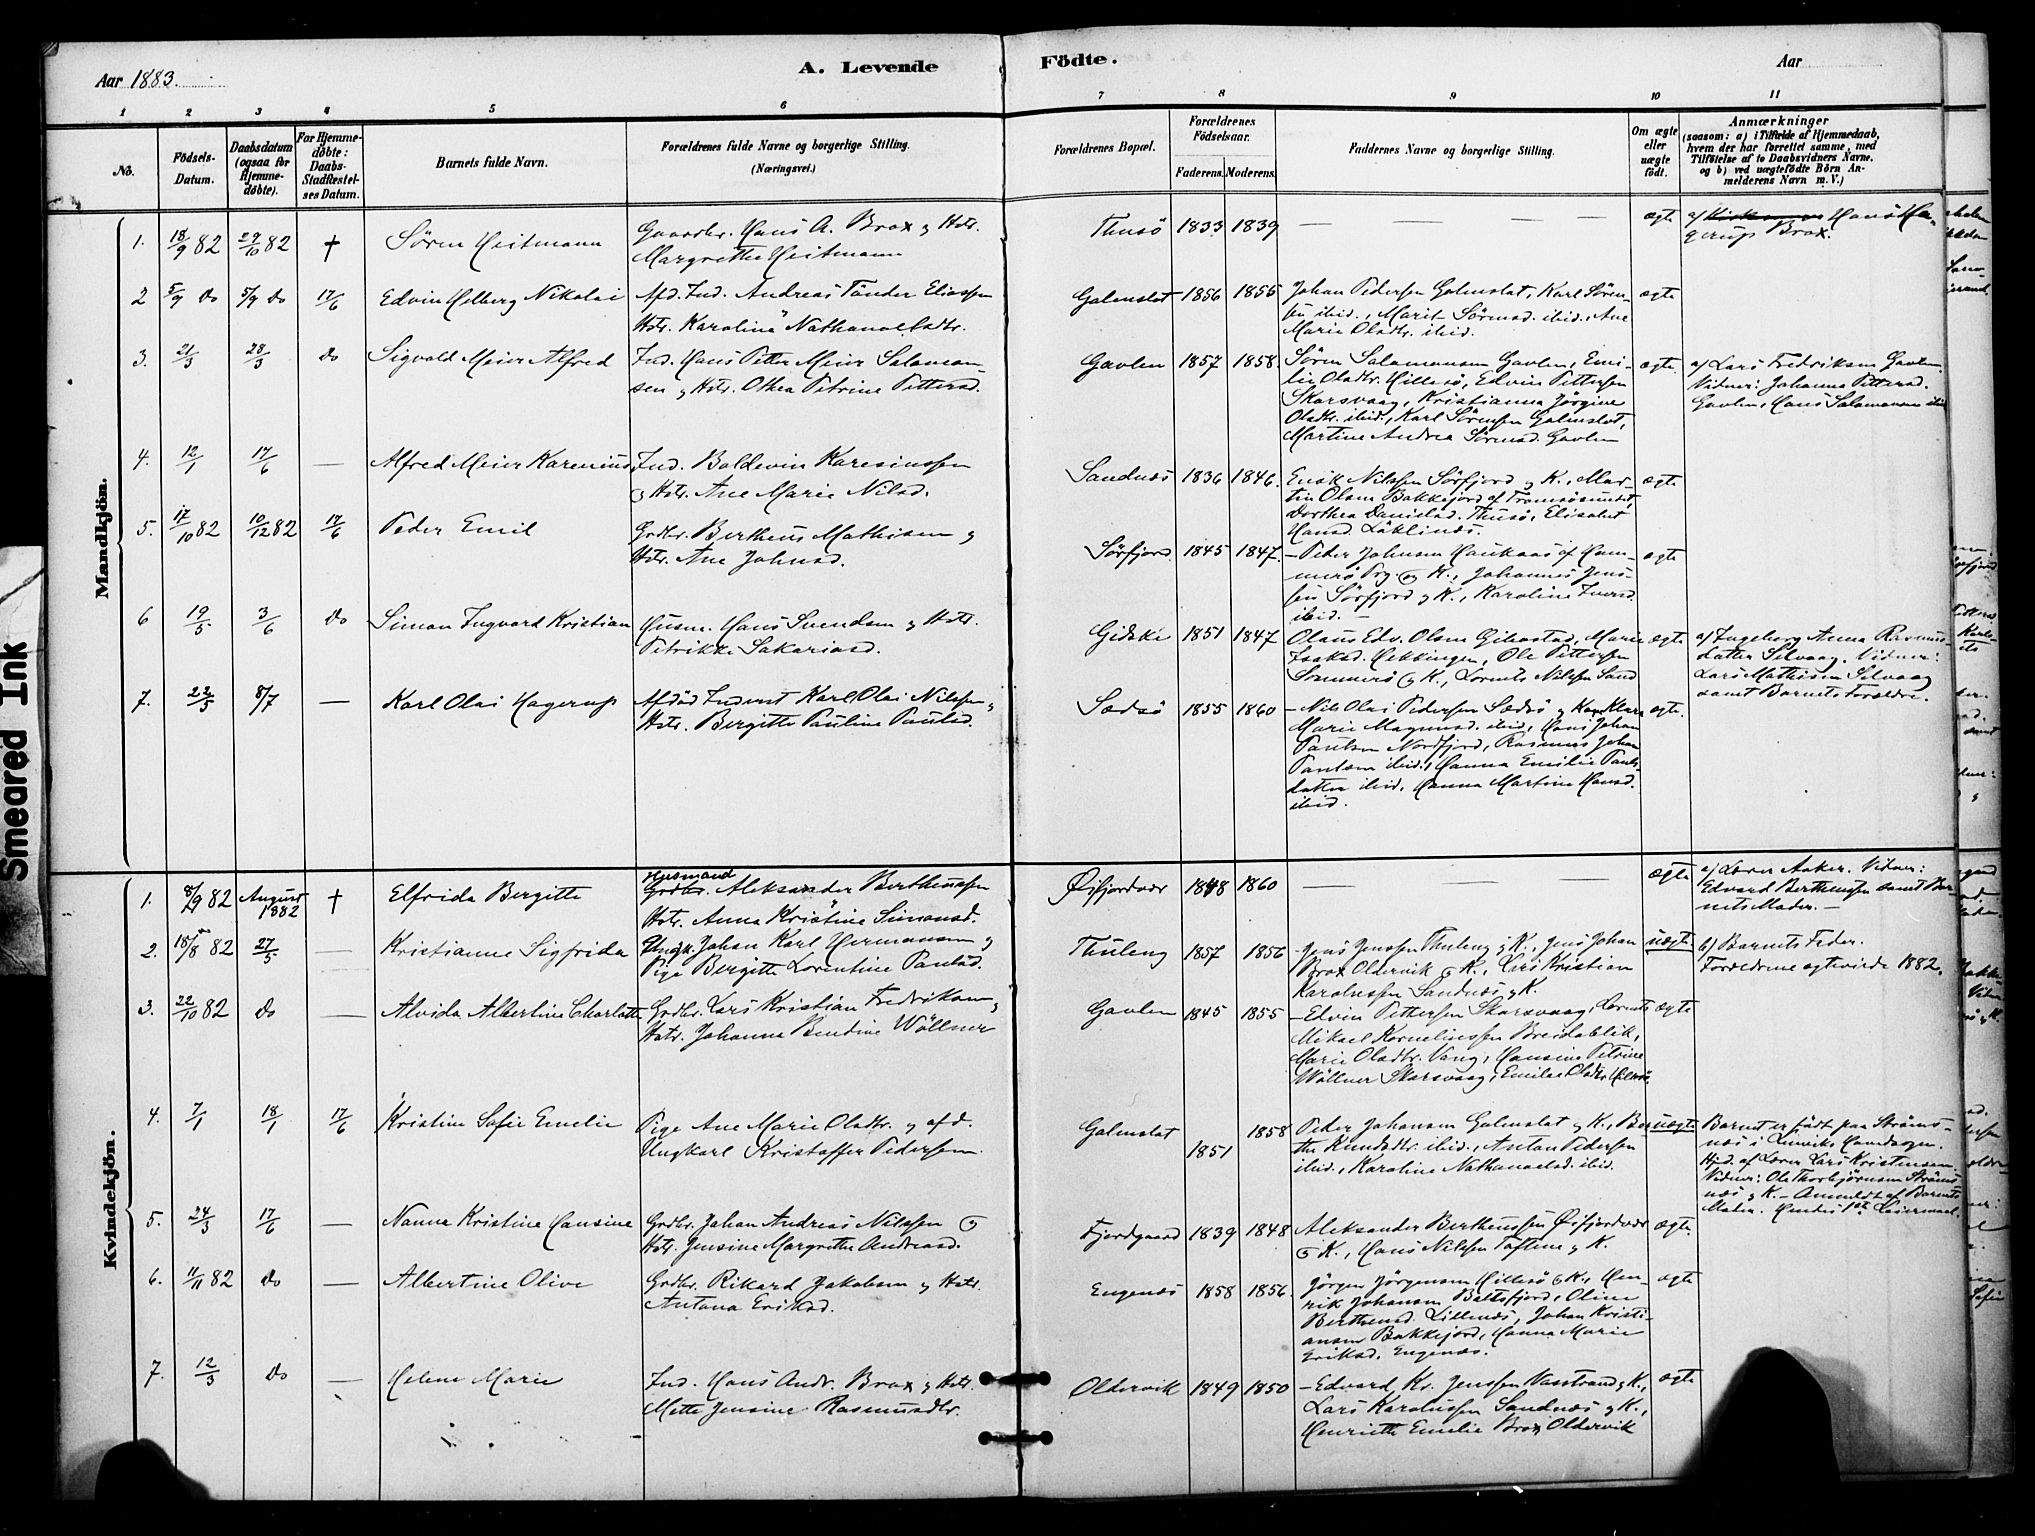 Aar 1883.
A. Levende Födte.
Aar
1 2 3 4 5 6 7 8 9 10 11
No.
Födsels-
Datum.
Daabsdatum
(ogsaa for
Hjemme-
döbte).
For Hjemme-
döbte:
Daabs-
Stadfæstel-
ses Datum.
Barnets fulde Navn.
Forældrenes fulde Navne og borgerlige Stilling.
(Næringsvei.)
Forældrenes Bopæl.
Forældrenes
Födselsaar.
Faderens. Moderens.
Faddernes Navne og borgerlige Stilling.
Om ægte
eller
uægte
födt.
Anmærkninger
(saasom: a) i Tilfælde af Hjemmedaab,
hvem der har forrettet samme, med
Tilföielse af to Daabsvidners Navne,
og b) ved uægtefödte Börn An-
melderens Navn m. V.)
Mandkjön.
1. 18/9 82 29/10 82 † Sören Heitmann
Gaardbr. Hans A. Brox og Hstr.
Margrethe Heitmann
Thusö 1833 1839 — — — — ægte
a) Hans Ha-
gerup Brox.
2 5/9 do 5/9 do 17/6 Edvin Helberg Nikolai
Afd. Ind. Andreas Tönder Eliassen
Hstr. Karoline Nathanaelsdtr.
Galmslat 1856 1855
Johan Pedersen Galmslat, Karl Sören-
sen ibid., Marit Sörensd. ibid., Ane
Marie Olsdtr. ibid.
ægte
3. 21/3 28/3 do Sigvald Meier Alfred
Ind. Hans Petter Meier Salamon-
sen og Hstr. Othea Petrine Pettersd.
Gavlen 1857 1858.
Sören Salamonsen Gavlen, Emi-
lie Olsdtr. Hillesö, Edvin Pettersen
Skarsvaag, Kristianna Jörgine
Olsdtr. ibid., Karl Sörensen Galmslat,
Martine Andrea Sörensd. Gavlen
ægte.
a) Lars Fredriksen Gavlen.
Vidner: Johanna Pettersd.
Gavlen, Hans Salamonsen ibid
4. 12/1 17/6 — Alfred Meier Karenius
Ind. Baldevin Karesiussen
og Hstr. Ane Marie Nilsd.
Sandnæs 1836 1846.
Enok Nilssen Sörfjord og K., Mar-
tin Olsen Bakkejord af Tromsösundet,
Dorthea Danielsd. Thusö, Elisabet
Hansd. Läklinæs.
ægte
5. 17/10 82 10/12 82 17/6 Peder Emil
Grdbr. Bertheus Mathisen og
Hstr. Ane Johnsd.
Sörfjord. 1845 1847.
— Peder Johnsen Haukaas af Ham-
merö Prg. og K., Johannes Jens-
sen Sörfjord og K., Karoline Iversd.
ibid. —
ægte
6 19/5 3/6 do Simon Ingvard Kristian
Husm. Hans Svendsen og Hstr.
Petrikke Sakariasd.
Gidske 1851 1847
Olaus Edv. Olsen Gibostad, Marie
Isaksd. Hekkingen, Ole Pettersen
Sommerö og K., Lorents Nilssen Sand
ægte
a) Ingeborg Anna Rasmus-
datter Selvaag. Vidner:
Lars Mathisen Selvaag
samt Barnets Forældre.
7. 22/5 8/7 — Karl Olai Hagerup
Afdöd Inderst Karl Olai Nilssen og
Hstr. Bergitte Pauline Paulsd.
Sædsö 1855 1860
— Nils Olai Pedersen Sædsö og K., Klara
Marie Magnusd. ibid., Hans Johan
Paulsen Nordfjord, Rasmus Johan
Paulsen ibid., Hanna Emilie Pauls-
datter ibid., Hanna Martine Hansd.
ibid.
ægte.
Kvindekjön.
1. 8/9 82 August 1882 † Elfrida Bergitte
Husmand
Grdbr. Aleksander Bertheussen
Hstr. Anna Kristine Simonsd.
Öifjordvær 1848 1860 — — — — ægte
a) Lærer Aaker. Vidner:
Edvard Bertheussen samt Bar-
nets Moder. —
2. 18/8 82 27/5 — Kristianne Sigfrida
Ungk. Johan Karl Hermansen og
Pige Bergitte Lorentine Paulsd.
Thuleng 1857 1856
— Jens Jenssen Thuleng og K., Jens Johan
Brox Oldervik og K., Lars Kristian
Karolussen Sandnæs og K.
uægte
b) Barnets Fader.
Forældrene egteviede 1882.
3. 22/10 82 do — Alvida Albertine Charlotte
Grdbr. Lars Kristian Fredriksen og
Hstr. Johanna Bendine Wöllner
Gavlen 1845 1855
— Edvin Pettersen Skarsvaag, Lornts
Mikael Korneliussen Breidablik,
Marie Olsdtr. Vang, Hansine Petrine
Wöllner Skarsvaag, Emilie Olsdtr. Hillesö
ægte
4. 7/1 18/1 17/6 Kristine Sofie Emelie
Pige Ane Marie Olsdtr. og afd.
Ungkarl Kristoffer Pedersen.
Galmslat 1851 1858
Peder Johansen Galmslat og K., Ber-
the Knudsdtr. ibid., Anton Pedersen
ibid., Karoline Nathanaelsd. ibid.
uægte
Barnet er födt paa Ströms-
næs i Lenviks Hovedsogn.
Hjd. af Lærer Lars Kristensen.
Vidner: Ole Thorbjörnsen Ströms-
næs og K. — Anmeldt af Barnets
Moder. Hendes 1ste Leiermaal.
5. 24/3 17/6 — Nanna Kristine Hansine
Grdbr. Johan Andreas Nilssen og
Hstr. Jensine Margrethe Andreasd.
Fjordgaard 1839 1848
Aleksander Bertheussen Öifjordvær
og K., Hans Nilssen Toftene og K.
ægte.
6. 11/11 82 do — Albertine Olive
Grdbr. Rikard Jakobsen og Hstr.
Antona Eriksd.
Engenæs 1858 1856.
Jörgen Jörgensen Hillesö og K., Hen-
rik Johansen Baltsfjord, Oline
Bertheusd. Lillenæs, Johan Kristi-
ansen Bakkejord, Hanna Marie
Eriksd. Engenæs.
ægte
7. 12/3 do — Helene Marie
Ind. Hans Andr. Brox og Hstr.
Mette Jensine Rasmusdtr.
Oldervik 1849 1850
— Edvard Kr. Jenssen Vasstrand og K.,
Lars Karolussen Sandnæs og K.,
Henriette Emelie Brox Oldervik
ægte
Smeared Ink